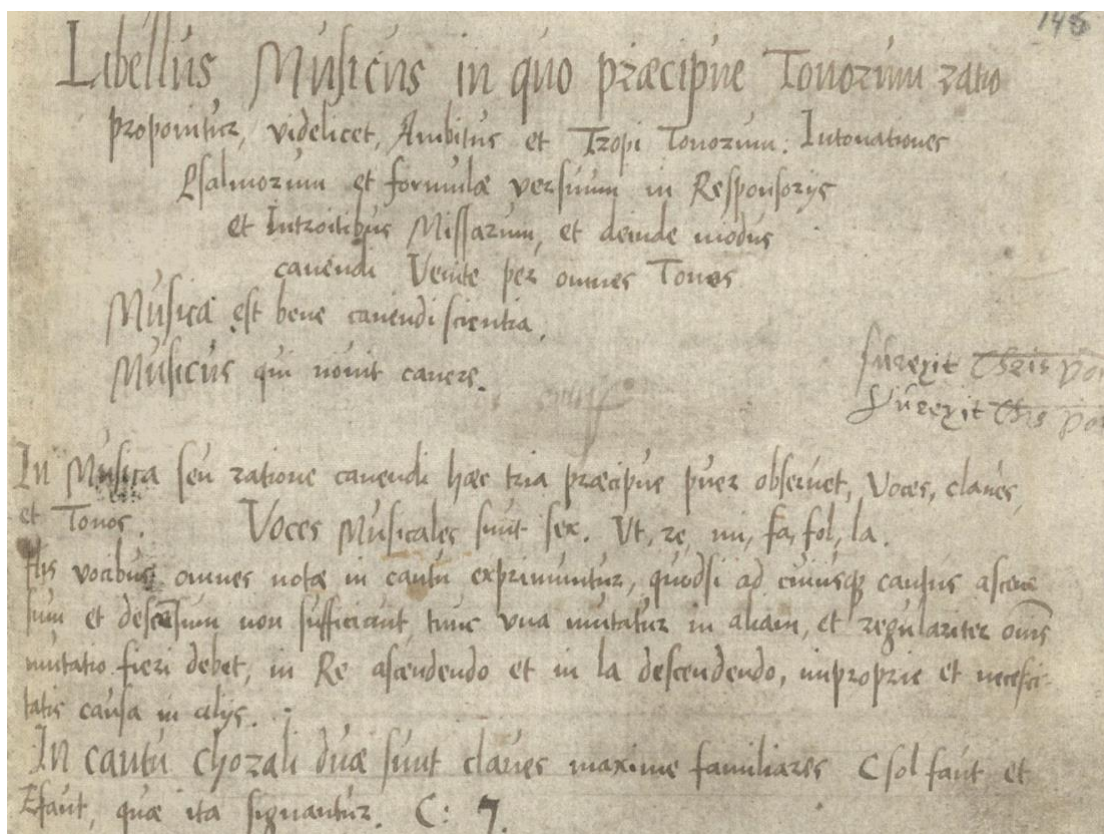 148
Libellus Musicus in quo præcipue Tonorum ratio
proponitur, videlicet, Ambitus et Tropi Tonorum. Intonationes
Psalmorum et formulæ versuum in Responsorijs
et Introitibus Missarum, et deinde modus
canendi Venite per omnes Tonos
Musica est bene canendi scientia.
Musicus qui novit canere.
surexit Chris
Surexit Chrs
In Musica seu ratione canendi hæc tria præcipue puer observet, Voces, claves,
et Tonos. Voces Musicales sunt sex. Vt, re, mi, fa, sol, la.
His vocibus omnes notæ in cantu exprimuntur, quodsi ad cuiusque cantus ascen
sum et descensum non sufficiunt, tunc una mutatur in aliam, et regulariter omis
mutatio fieri debet, in Re ascendendo et in la descendendo, improprie et necessi-
tatis causa in alijs.
In cantu chorali duæ sunt claves maxime familiares C sol faut et
Ffaut, quæ ita signantur. C: